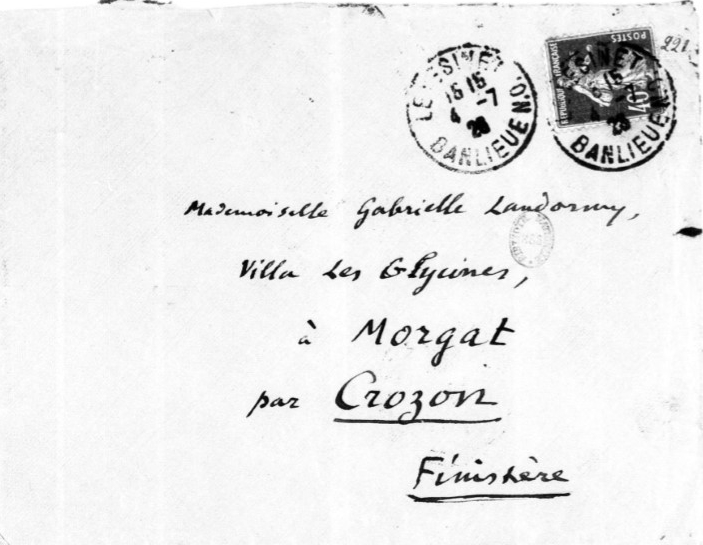 221
LE VESINET
15 15
4 -7
28
BANLIEUE N.O.
REPUBLIQUE FRANÇAISE
POSTES
40
SINET
15
4 -7
28
BANLIEUE N.O.
Mademoiselle Gabrielle Landormy,
Villa Les Glycines,
à Morgat
par Crozon
Finistère